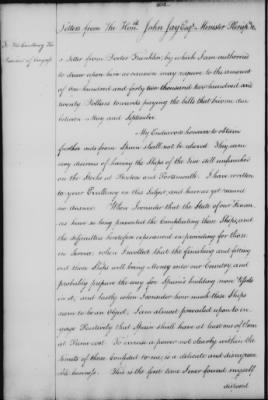 Letters from The Honble John Jay Esqr. Minister Plenipo. &c.
To His Excellency The
President of Congress
a Letter from Doctor Franklin, by which I am authorized
to draw upon him as occasion may require to the amount
of One hundred and forty two thousand two hundred and
twenty Dollars towards paying the bills that become due
between May and September.
My Endeavors however to obtain
further aids from Spain shall not be abated. They are
very desirous of having the Ships of the line still unfinished
on the Stocks at Boston and Portsmouth. I have written
to your Excellency on this Subject, and have as yet received
no Answer. When I consider that the State of our Finan-
ces have so long prevented the Compleating those Ships, and
the difficulties heretofore experienced in providing for those
in Service; when I reflect that the finishing and fitting
out these Ships will bring Money into our Country, and
probably prepare the way for Spain's building more Vessels
in it, and lastly when I consider how much these Ships
seem to be an Object, I am almost prevailed upon to en-
gage Positively that Spain shall have at least one of them
at Prime cost. To exercise a power not clearly within the
limits of those Confided to me, is a delicate and disagreea-
ble business. This is the first time I ever found myself
disposed